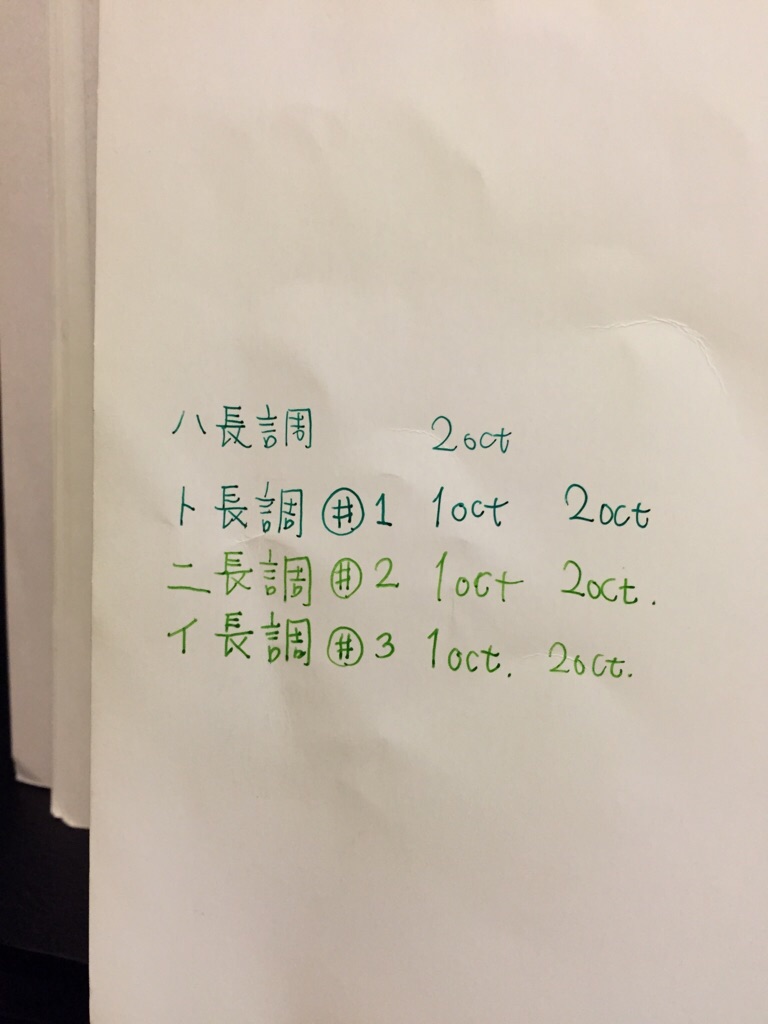 ハ長調 2oct
ト長調 ♯1 1oct 2oct
ニ長調 ♯2 1oct 2oct.
イ長調 ♯3 1oct. 2oct.